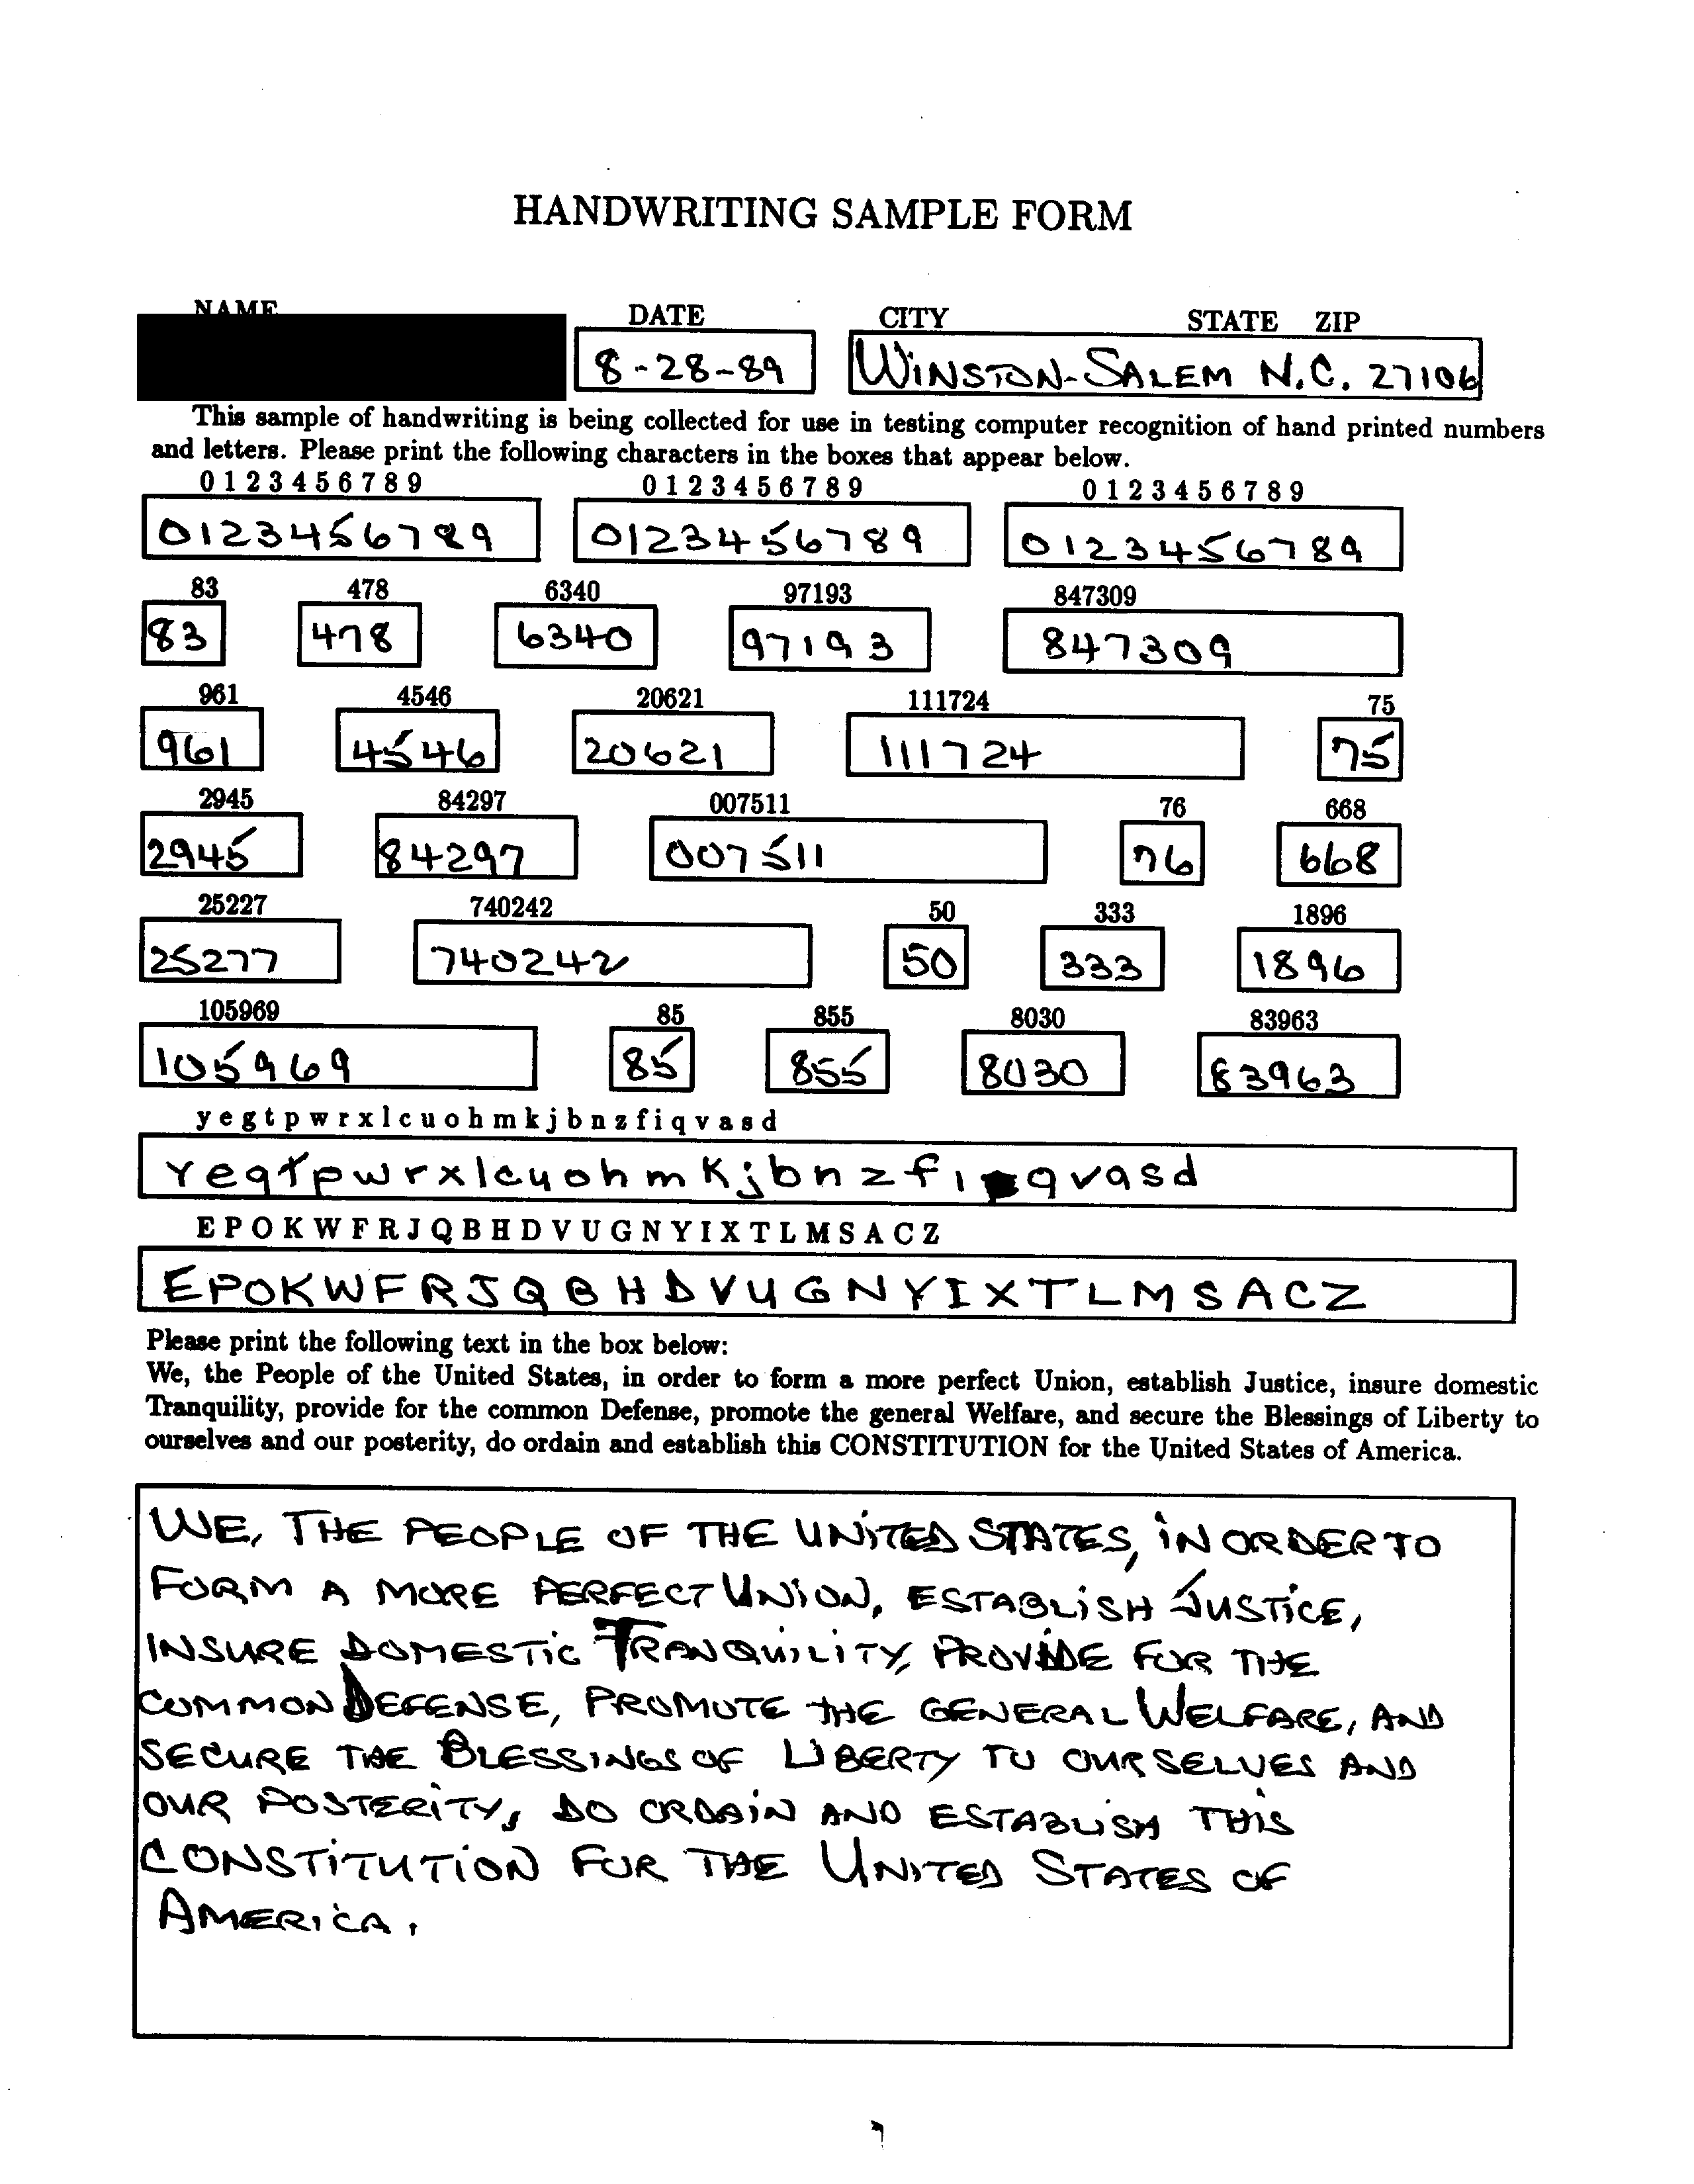 HANDWRITING SAMPLE FORM
NAME DATE CITY STATE ZIP
8-28-89 WINSTON-SALEM N.C. 27106
This sample of handwriting is being collected for use in testing computer recognition of hand printed numbers
and letters. Please print the following characters in the boxes that appear below.
0 1 2 3 4 5 6 7 8 9 0 1 2 3 4 5 6 7 8 9 0 1 2 3 4 5 6 7 8 9
0123456789 0123456789 0123456789
83 478 6340 97193 847309
83 478 6340 97193 847309
961 4546 20621 111724 75
961 4546 20621 111724 75
2945 84297 007511 76 668
2945 84297 007511 76 668
25227 740242 50 333 1896
25277 740242 50 333 1896
105969 85 855 8030 83963
105969 85 855 8030 83963
y e g t p w r x l c u o h m k j b n z f i q v a s d
yegtpwrxlcuohmkjbnzfiqvasd
E P O K W F R J Q B H D V U G N Y I X T L M S A C Z
EPOKWFRJQBHDVUGNYIXTLMSACZ
Please print the following text in the box below:
We, the People of the United States, in order to form a more perfect Union, establish Justice, insure domestic
Tranquility, provide for the common Defense, promote the general Welfare, and secure the Blessings of Liberty to
ourselves and our posterity, do ordain and establish this CONSTITUTION for the United States of America.
WE, THE PEOPLE OF THE UNITED STATES, IN ORDER TO
FORM A MORE PERFECT UNION, ESTABLISH JUSTICE,
INSURE DOMESTIC TRANQUILITY, PROVIDE FOR THE
COMMON DEFENSE, PROMOTE THE GENERAL WELFARE, AND
SECURE THE BLESSINGS OF LIBERTY TO OURSELVES AND
OUR POSTERITY, DO ORDAIN AND ESTABLISH THIS
CONSTITUTION FOR THE UNITED STATES OF
AMERICA.